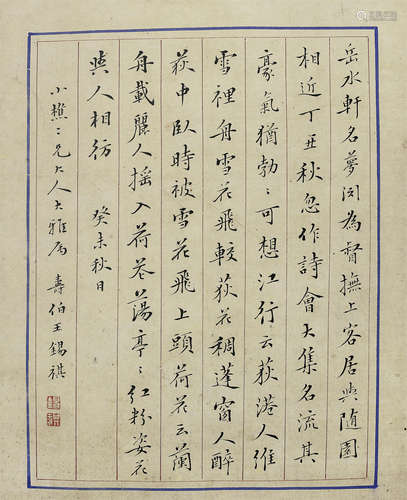 岳水軒名夢淵為督撫上客居與随園
相近丁丑秋忽作詩會大集名流其
豪氣猶勃〻可想江行云荻港人維
雪裡舟雪花飛較荻花稠蓬窗人醉
荻中臥時被雪花飛上頭荷花云蘭
舟載麗人摇入荷花蕩亭〻紅粉姿花
與人相彷 癸未秋日
小樵二兄大人大雅屬 壽伯王錫祺